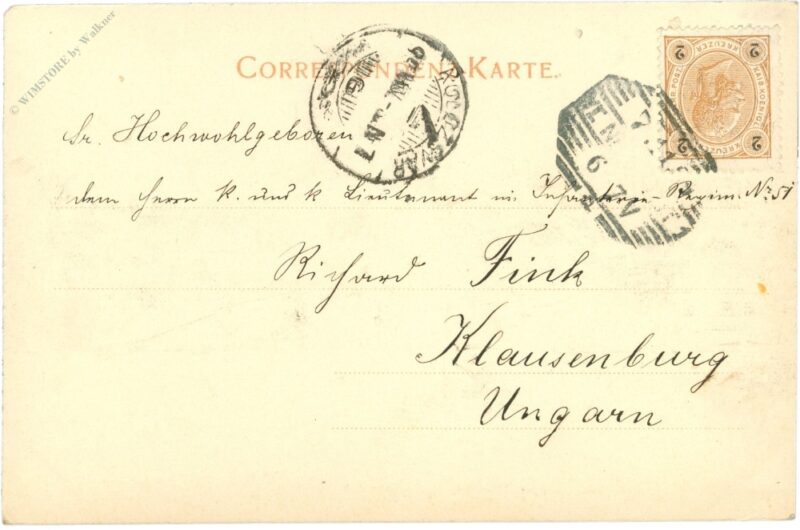 © WIMSTORE by Walkner
CORRESPONDENZ-KARTE.
Sr. Hochwohlgeboren
dem Herrn k. und k Lieutenant in Infanterie-Regim. No 51
Richard Fink
Klausenburg
Ungarn
KOLOZSVÁR
2 KREUZER 2
2 2